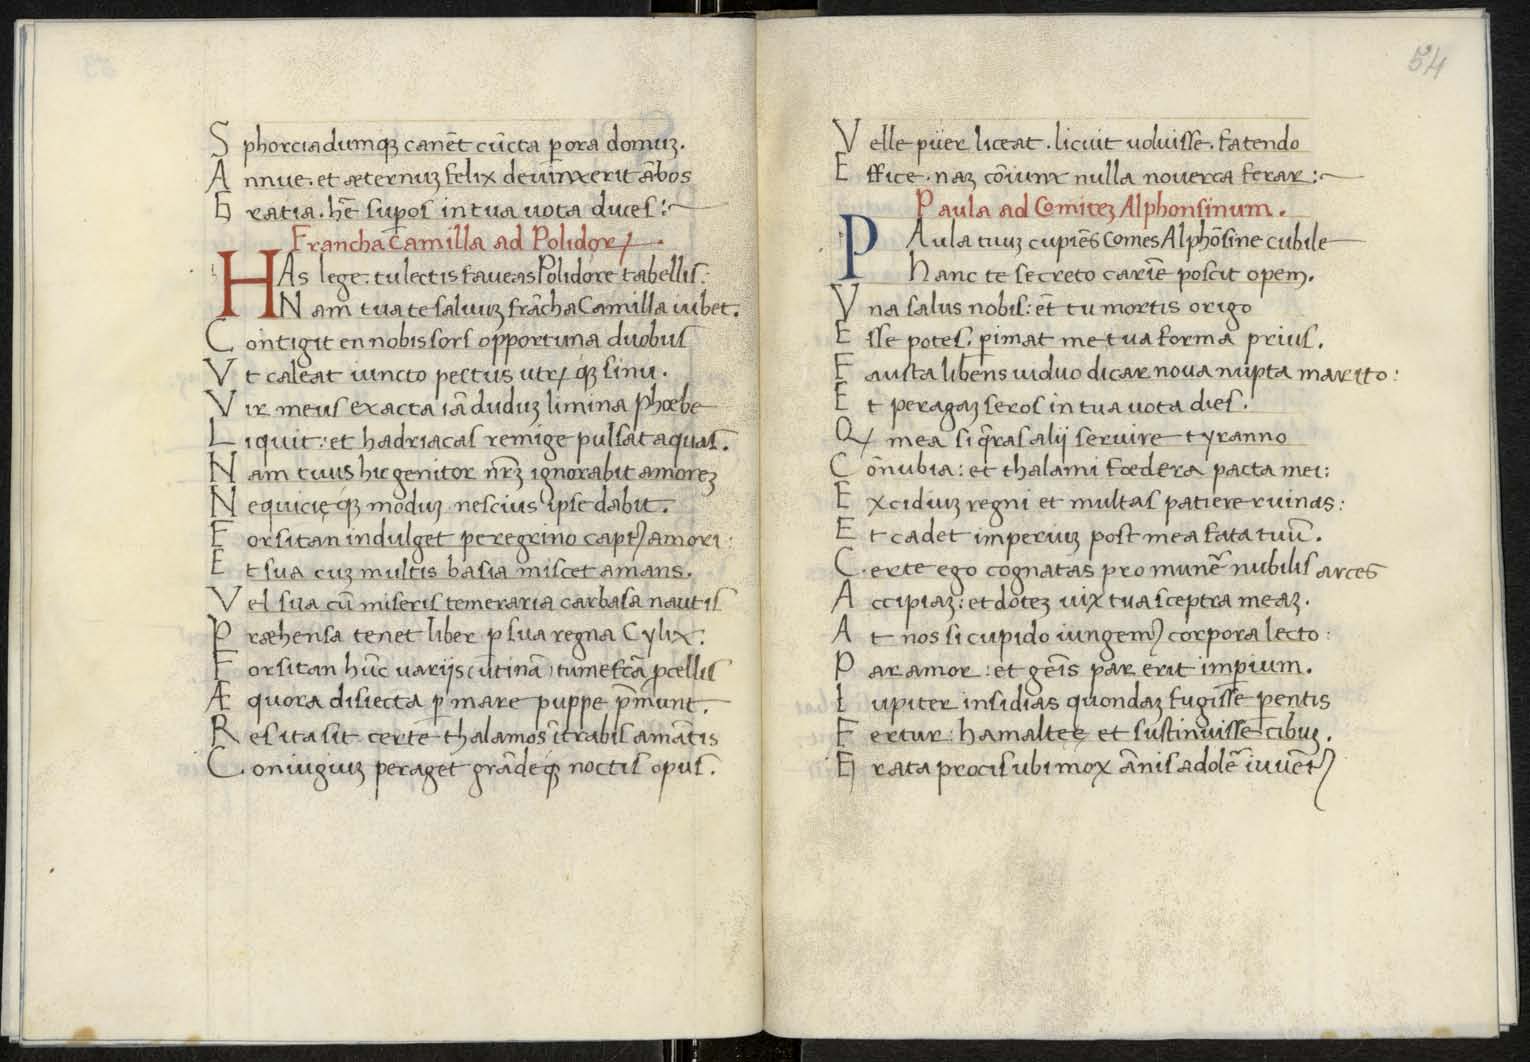 Sphorciadumqꝫ canēt cūcta ꝑ ora domuꝫ.
Annue. et æternuꝫ felix deuinxerit ābos
Gratia. hēs suꝑos in tua uota duces:
Francha Camilla ad Polidorꝝ.
HAs lege: tu lectis faueas Polidore tabellis:
Nam tua te saluuꝫ frācha Camilla iubet.
Contigit en nobis sors opportuna duobus
Vt caleat iuncto pectus utrꝝqꝫ sinu.
Vir meus exacta iā duduꝫ limina phœbe
Liquit: et hadriacas remige pulsat aquas.
Nam tuus hic genitor nr̄ꝫ ignorabit amoreꝫ
Nequicięqꝫ moduꝫ nescius ipse dabit.
Forsitan indulget peregrino captꝰ amori:
Et sua cuꝫ multis basia miscet amans.
Vel sua cū miseris temeraria carbasa nautis
Præhensa tenet liber ꝑ sua regna Cylix:
Forsitan hūc uarijs (utinā) tumefcā ꝓcellis
Æquora disiecta ꝑ mare puppe p̄munt.
Res ita sit certe thalamos ītrabis amātis
Coniugiuꝫ peraget grādeqꝫ noctis opus.
54
Velle puer liceat. licuit uoluisse. fatendo
Effice. naꝫ cōiunx nulla nouerca ferar:
Paula ad Comiteꝫ Alphonsinum.
PAula tuuꝫ cupiēs Comes Alphōsine cubile
Hanc te secreto cariē poscit opem.
Vna salus nobis: et tu mortis origo
Esse potes. ꝑimat me tua forma prius.
Fausta libens uiduo dicar noua nupta marito:
Et peragaꝫ seros in tua uota dies.
Qꝝ mea si q̄ras alij seruire tyranno
Cōnubia: et thalami fœdera pacta mei:
Excidiuꝫ regni et multas patiere ruinas:
Et cadet imperiuꝫ post mea fata tuū.
Certe ego cognatas pro munē nubilis arces
Accipiaꝫ: et doteꝫ uix tua sceptra meaꝫ.
At nos si cupido iungemꝰ corpora lecto:
Par amor: et geīs par erit impium.
Iupiter insidias quondaꝫ fugisse ꝑentis
Fertur: hamalteę et sustinuisse cibuꝫ.
Grata procis ubi mox ānis adolē iuuētꝰ